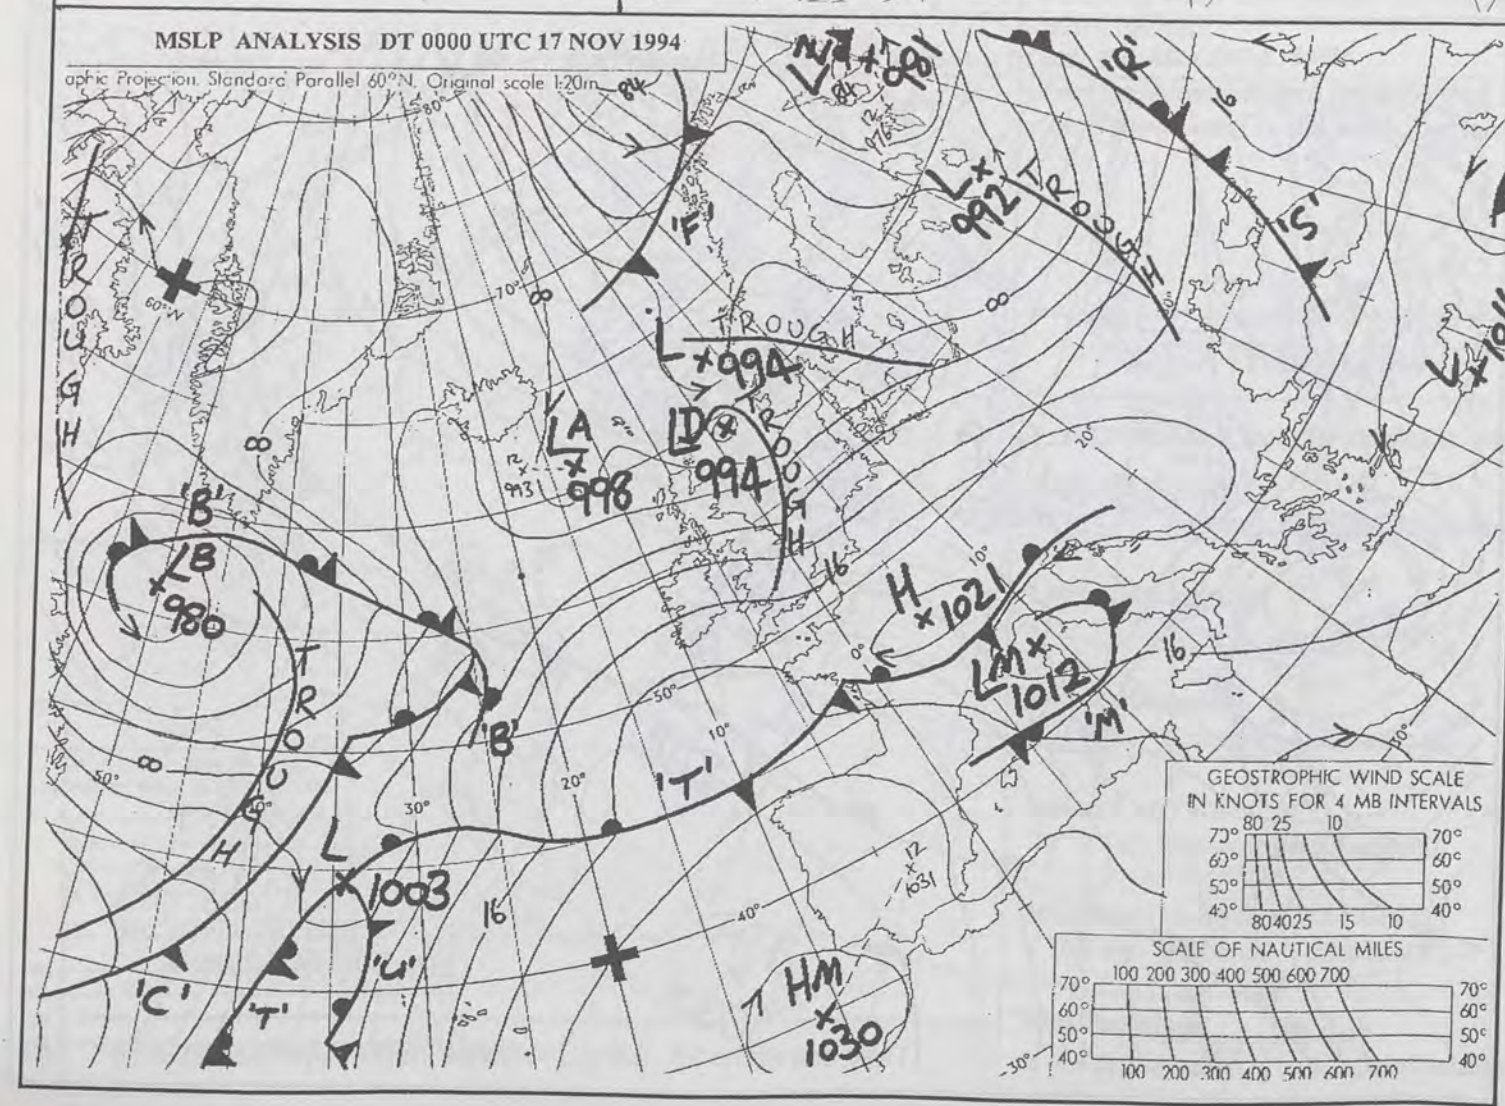 MSLP ANALYSIS DT 0000 UTC 17 NOV 1994
aphic Projection. Standard Parallel 60°N. Original scale 1:20m
84
84
80°
L
981
12
976
'R'
16
L
992
TROUGH
'S'
'F'
TROUGH
60°W
70°
8
8
L
994
TROUGH
L
101
L A
998
12
993
L D
994
TROUGH
20°
8
'B'
L B
980
16
10°
H
1021
0°
L M
1012
16
'M'
TROUGH
'B'
50°
10°
'T'
50°
8
40°
30°
20°
L
1003
16
12
1031
40°
'U'
'C'
'T'
H M
1030
30°
30°
GEOSTROPHIC WIND SCALE
IN KNOTS FOR 4 MB INTERVALS
80 25 10
70° 70°
60° 60°
50° 50°
40° 40°
80 40 25 15 10
SCALE OF NAUTICAL MILES
100 200 300 400 500 600 700
70° 70°
60° 60°
50° 50°
40° 40°
100 200 300 400 500 600 700